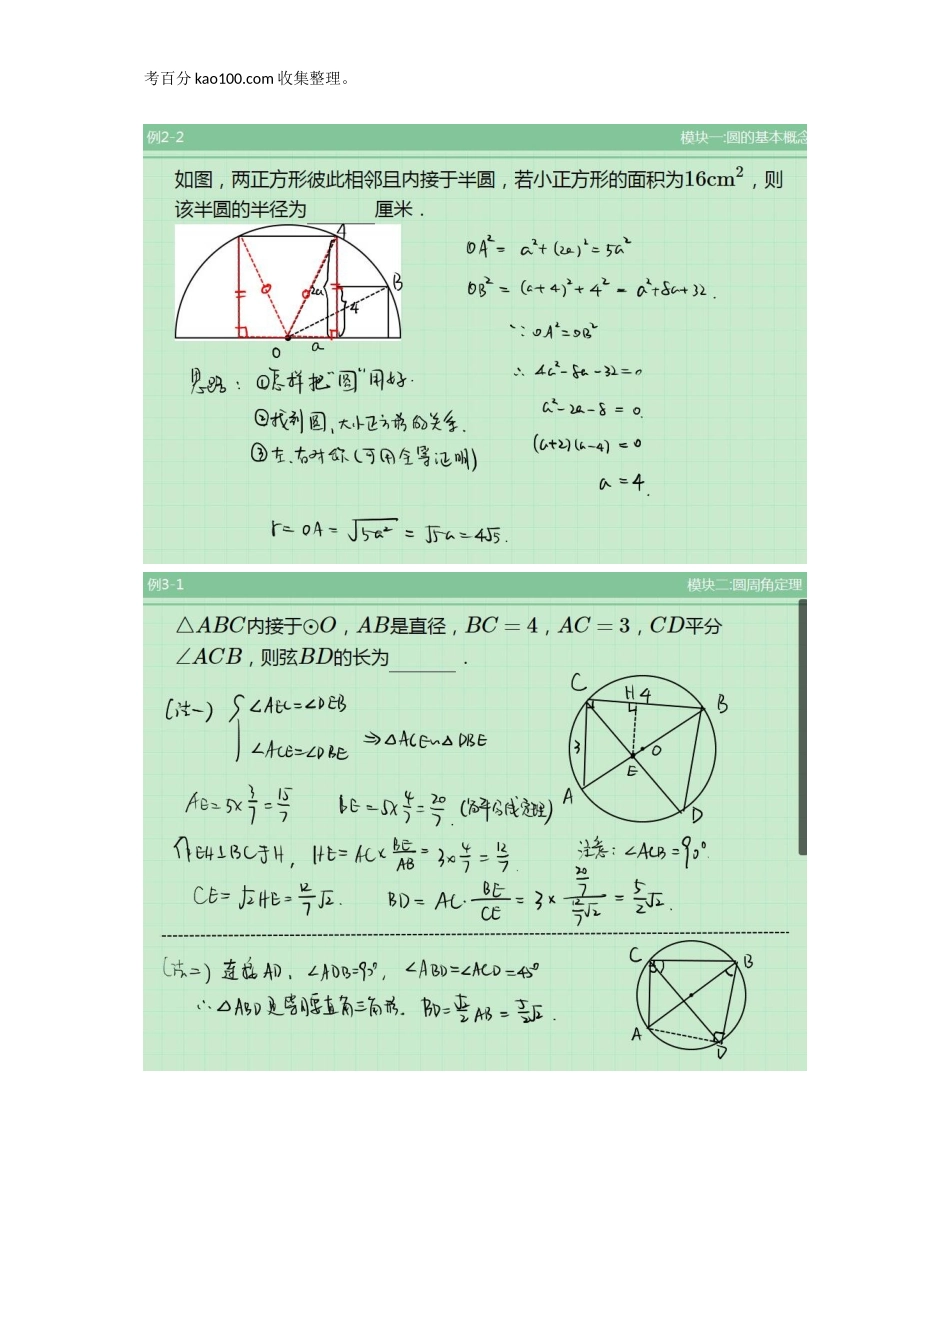 考百分 kao100.com 收集整理。
例2-2 模块一:圆的基本概念
如图，两正方形彼此相邻且内接于半圆，若小正方形的面积为16cm²，则
该半圆的半径为______厘米．
A
B
2a
4
O
a
OA²= a²+(2a)²=5a²
OB²=(a+4)²+4²=a²+8a+32.
∵OA²=OB²
∴4a²-8a-32=0
a²-2a-8=0.
(a+2)(a-4)=0
a=4.
思路: ①怎样把“圆”用好.
②找到圆、大小正方形的关系.
③左、右对称(可用全等证明)
r=OA=√5a²=√5a=4√5.
例3-1 模块二:圆周角定理
△ABC内接于⊙O，AB是直径，BC=4，AC=3，CD平分
∠ACB，则弦BD的长为______．
(法一) { ∠AEC=∠DEB
∠ACE=∠DBE ⇒△ACE∽△DBE
C
H 4
B
3
O
E
A
D
AE=5×3/7=15/7 BE=5×4/7=20/7.(角平分线定理)
作EH⊥BC于H, HE=AC×BE/AB=3×4/7=12/7
注意:∠ACB=90°.
CE=√2HE=12/7√2. BD=AC·BE/CE=3×(20/7)/(12/7√2)=5/2√2.
(法二) 连接AD, ∠ADB=90°, ∠ABD=∠ACD=45°
∴△ABD是等腰直角三角形. BD=√2/2AB=5/2√2.
C
B
A
D